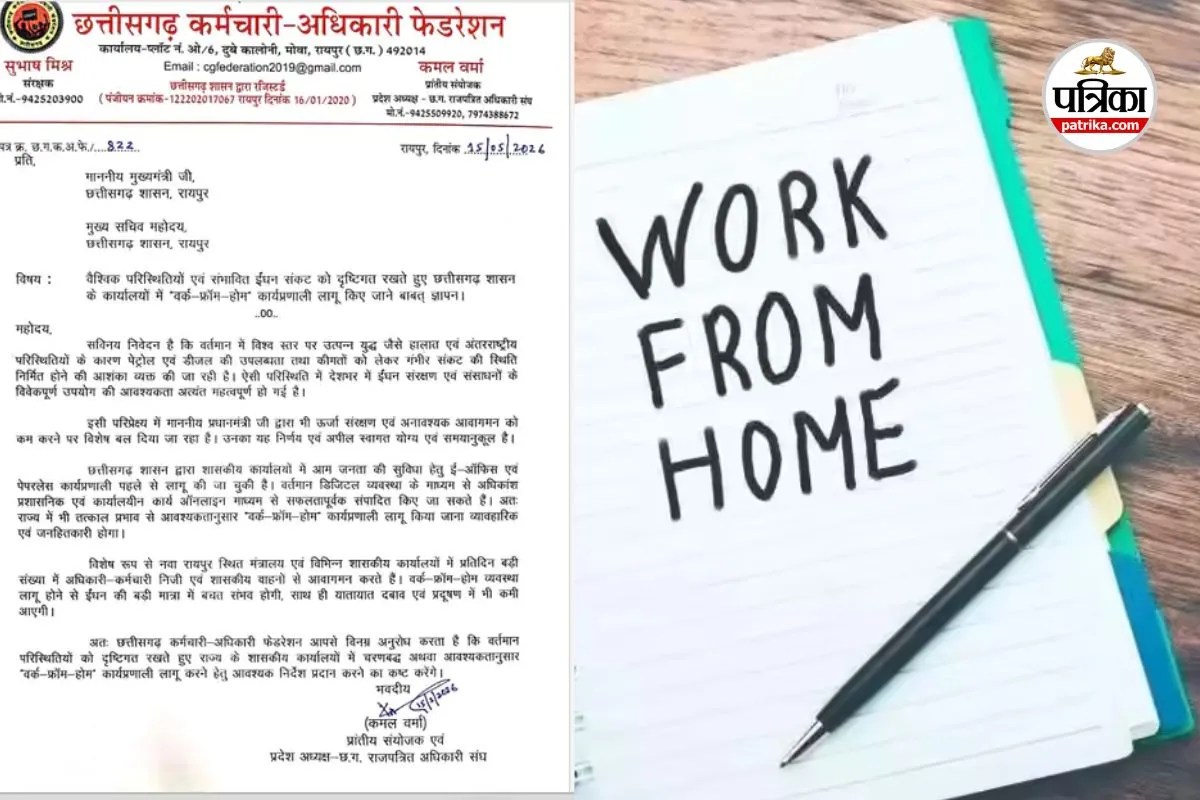 छत्तीसगढ़ कर्मचारी–अधिकारी फेडरेशन
कार्यालय–प्लॉट नं. ओ/6, दुबे कालोनी, मोवा, रायपुर ( छ.ग. ) 492014
Email : cgfederation2019@gmail.com
सुभाष मिश्र
संरक्षक
मो.नं.-9425203900
छत्तीसगढ़ शासन द्वारा रजिस्टर्ड
( पंजीयन क्रमांक-122202017067 रायपुर दिनांक 16/01/2020 )
कमल वर्मा
प्रांतीय संयोजक
प्रदेश अध्यक्ष - छ.ग. राजपत्रित अधिकारी संघ
मो.नं.-9425509920, 7974388672
पत्र क्र. छ.ग.क.अ.फे./....822......
रायपुर, दिनांक 15/05/2026
प्रति,
माननीय मुख्यमंत्री जी,
छत्तीसगढ़ शासन, रायपुर
मुख्य सचिव महोदय,
छत्तीसगढ़ शासन, रायपुर
विषय : वैश्विक परिस्थितियों एवं संभावित ईंधन संकट को दृष्टिगत रखते हुए छत्तीसगढ़ शासन
के कार्यालयों में "वर्क–फ्रॉम–होम" कार्यप्रणाली लागू किए जाने बाबत् ज्ञापन।
..00..
महोदय,
सविनय निवेदन है कि वर्तमान में विश्व स्तर पर उत्पन्न युद्ध जैसे हालात एवं अंतरराष्ट्रीय
परिस्थितियों के कारण पेट्रोल एवं डीजल की उपलब्धता तथा कीमतों को लेकर गंभीर संकट की स्थिति
निर्मित होने की आशंका व्यक्त की जा रही है। ऐसी परिस्थिति में देशभर में ईंधन संरक्षण एवं संसाधनों के
विवेकपूर्ण उपयोग की आवश्यकता अत्यंत महत्वपूर्ण हो गई है।
इसी परिप्रेक्ष्य में माननीय प्रधानमंत्री जी द्वारा भी ऊर्जा संरक्षण एवं अनावश्यक आवागमन को
कम करने पर विशेष बल दिया जा रहा है। उनका यह निर्णय एवं अपील स्वागत योग्य एवं समयानुकूल है।
छत्तीसगढ़ शासन द्वारा शासकीय कार्यालयों में आम जनता की सुविधा हेतु ई–ऑफिस एवं
पेपरलेस कार्यप्रणाली पहले से लागू की जा चुकी है। वर्तमान डिजिटल व्यवस्था के माध्यम से अधिकांश
प्रशासनिक एवं कार्यालयीन कार्य ऑनलाइन माध्यम से सफलतापूर्वक संपादित किए जा सकते हैं। अतः
राज्य में भी तत्काल प्रभाव से आवश्यकतानुसार "वर्क–फ्रॉम–होम" कार्यप्रणाली लागू किया जाना व्यावहारिक
एवं जनहितकारी होगा।
विशेष रूप से नवा रायपुर स्थित मंत्रालय एवं विभिन्न शासकीय कार्यालयों में प्रतिदिन बड़ी
संख्या में अधिकारी–कर्मचारी निजी एवं शासकीय वाहनों से आवागमन करते हैं। वर्क–फ्रॉम–होम व्यवस्था
लागू होने से ईंधन की बड़ी मात्रा में बचत संभव होगी, साथ ही यातायात दबाव एवं प्रदूषण में भी कमी
आएगी।
अतः छत्तीसगढ़ कर्मचारी–अधिकारी फेडरेशन आपसे विनम्र अनुरोध करता है कि वर्तमान
परिस्थितियों को दृष्टिगत रखते हुए राज्य के शासकीय कार्यालयों में चरणबद्ध अथवा आवश्यकतानुसार
"वर्क–फ्रॉम–होम" कार्यप्रणाली लागू करने हेतु आवश्यक निर्देश प्रदान करने का कष्ट करेंगे।
भवदीय
15/5/2026
(कमल वर्मा)
प्रांतीय संयोजक एवं
प्रदेश अध्यक्ष–छ.ग. राजपत्रित अधिकारी संघ
WORK
FROM
HOME
पत्रिका
patrika.com